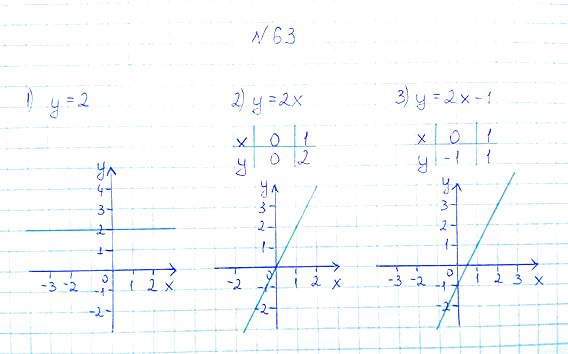 № 63
1) y = 2
2) y = 2x
3) y = 2x - 1
x 0 1
y 0 2
x 0 1
y -1 1
y
4
3
2
1
0
-3 -2 1 2 x
-1
-2
y
3
2
1
0
-2 1 2 x
-1
-2
y
3
2
1
0
-3 -2 -1 1 2 3 x
-1
-2